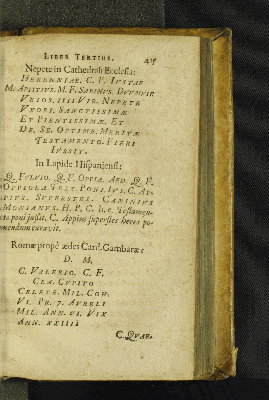 LIBER TERTIVS.
Nepete in Cathedrali Ecclesia:
HERENNIAE. C. F. IVSTAE
M. APISTIVS. M. F. SABINVS. DVVMVIR
VXORI. SANCTISSIMAE
ET PIENTISSIMAE. ET
DE. SE. OPTIME. MERITAE
TESTAMENTO. FIERI
IVSSIT.
In Lapide Hispaniensi:
Q. FVLVIO. Q. F. OPPIA. AED. Q. F.
TEST. PONI. IVS. C. AP-
PIVS. SVPERSTES. CANINIVS
MONIANVS. H. P. C. h. e. Testamen-
to poni jussit. C. Appius superstes heres po-
nendum curavit.
Romæ propè ædes Card. Gambaræ:
D. M.
C. VALERIO. C. F.
CLA. CVPITO
CELERE. MIL. COH.
VI. PR. 7. AVRELI
MIL. ANN. VI. VIX
ANN. XXIIII
C. QVAR.